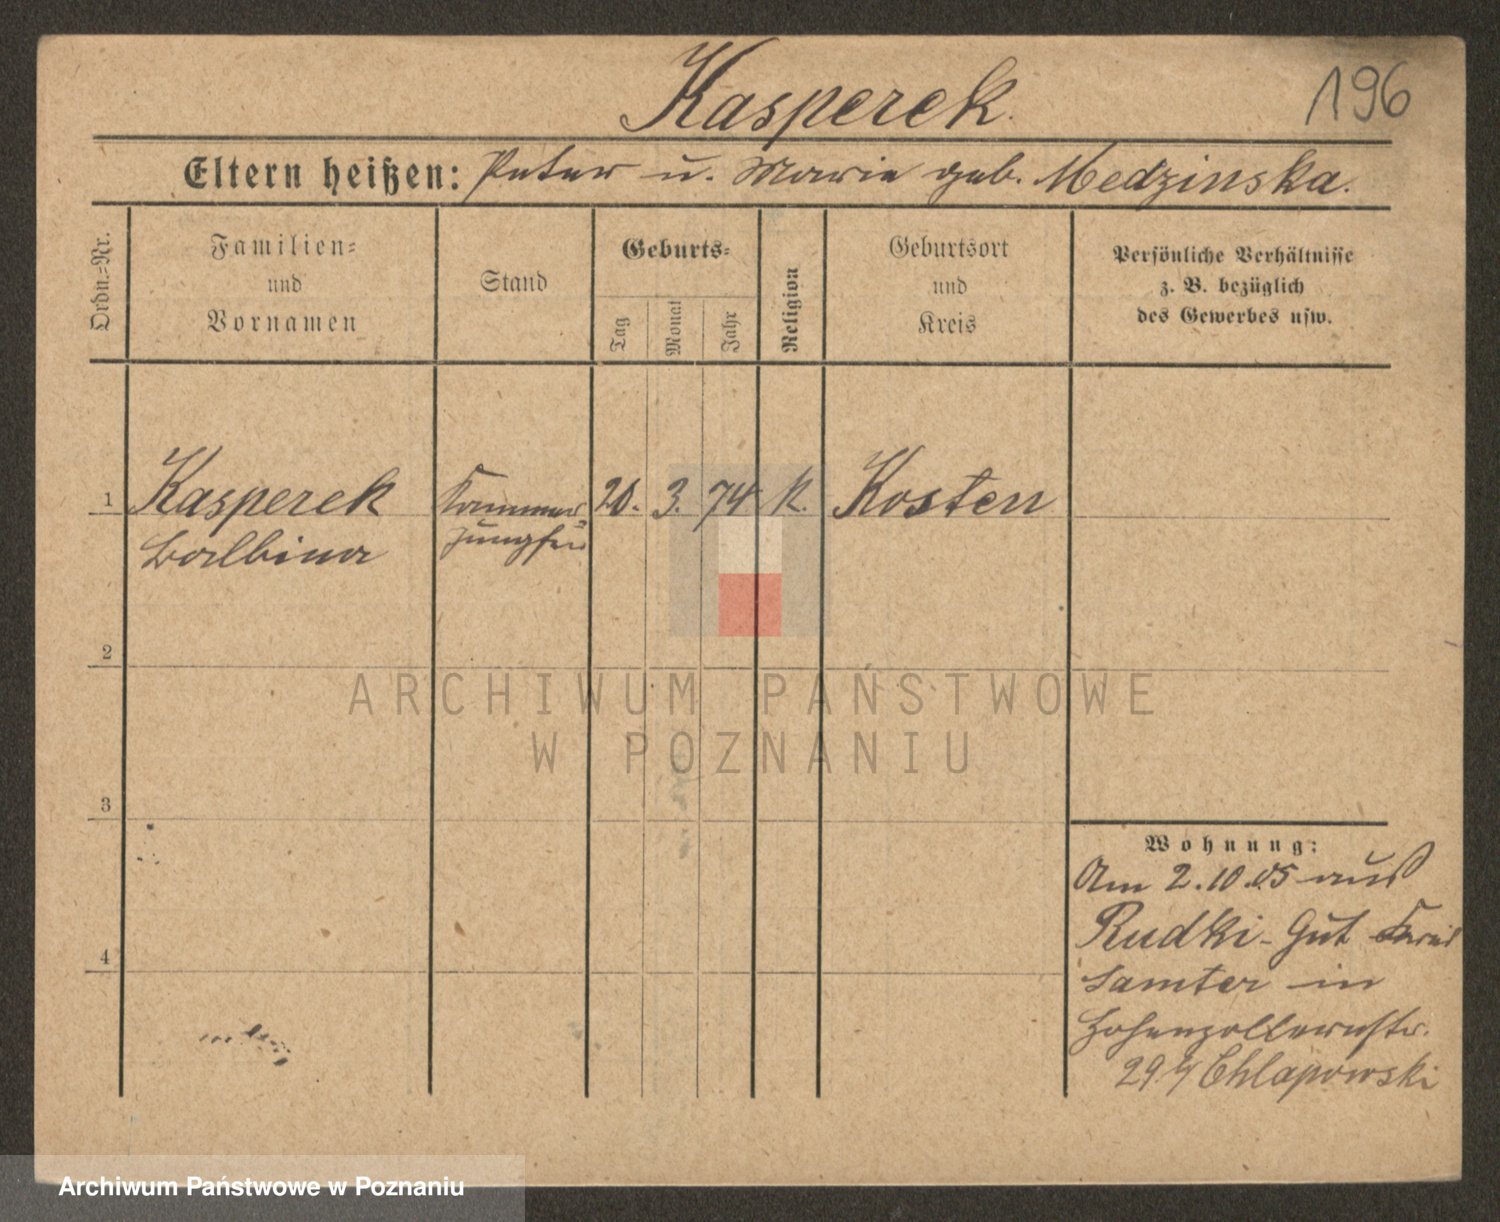 Kasperek.
196
Eltern heißen: Peter u. Marie geb. Medzinska.
Ordn.-Nr.
Familien-
und
Vornamen
Stand
Geburts-
Tag
Monat
Jahr
Religion
Geburtsort
und
Kreis
Persönliche Verhältnisse
z. B. bezüglich
des Gewerbes usw.
1
Kasperek
Balbina
Kammer-
jungfer
20. 3. 74 k. Kosten
2
ARCHIWUM PAŃSTWOWE
W POZNANIU
3
4
Wohnung:
Am 2.10.05 aus
Rudki-Gut Kreis
Samter in
Hohenzollernstr.
29 Chlapowski
Archiwum Państwowe w Poznaniu